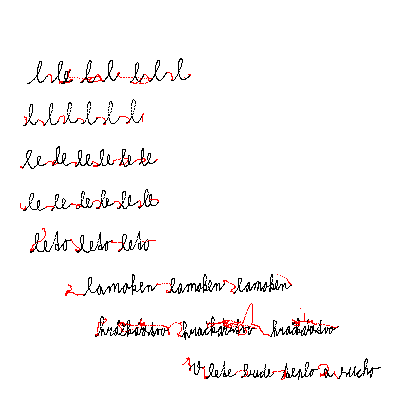 l l l l l l l
l l l l l l
le le le le le le
le le le le le le
leto leto leto
lamoken lamoken lamoken
hračkárstvo hračkárstvo hračkárstvo
V lete bude teplo a sucho